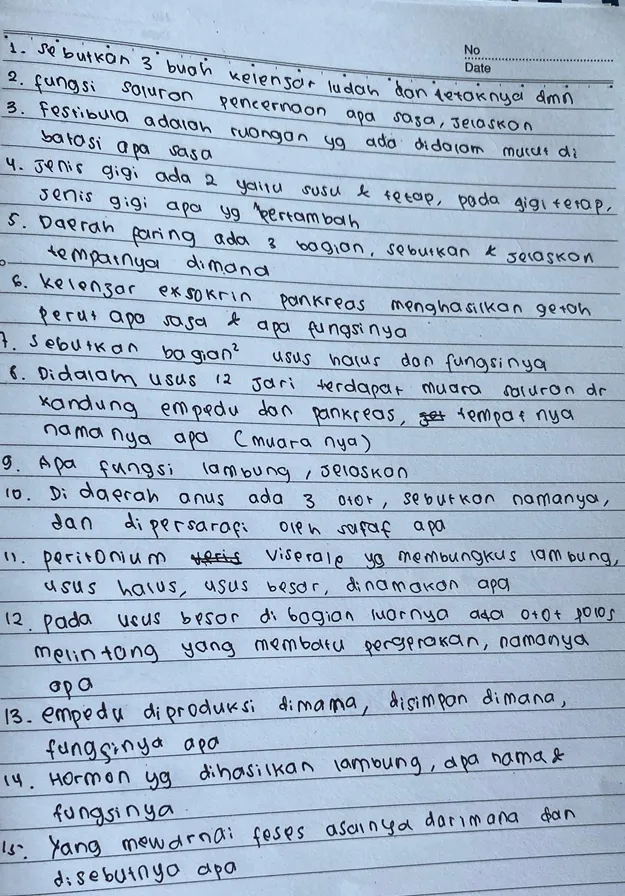 No
Date
1. Sebutkan 3 buah kelenjar ludah dan letaknya dmn
2. fungsi saluran pencernaan apa saja, jelaskan
3. Festibula adalah ruangan yg ada didalam mulut di
batasi apa saja
4. Jenis gigi ada 2 yaitu susu & tetap, pada gigi tetap,
jenis gigi apa yg bertambah
5. Daerah faring ada 3 bagian, sebutkan & jelaskan
tempatnya dimana
6. kelenjar eksokrin pankreas menghasilkan getah
perut apa saja & apa fungsinya
7. Sebutkan bagian² usus halus dan fungsinya
8. Didalam usus 12 jari terdapat muara saluran dr
kandung empedu dan pankreas, tempat nya
namanya apa (muara nya)
9. Apa fungsi lambung, jelaskan
10. Di daerah anus ada 3 otot, sebutkan namanya,
dan dipersarafi oleh saraf apa
11. peritonium viserale yg membungkus lambung,
usus halus, usus besar, dinamakan apa
12. pada usus besar di bagian luarnya ada otot polos
melintang yang membatu pergerakan, namanya
apa
13. empedu diproduksi dimama, disimpan dimana,
fungsinya apa
14. Hormon yg dihasilkan lambung, apa nama &
fungsinya.
15. Yang mewarnai feses asalnya darimana dan
disebutnya apa